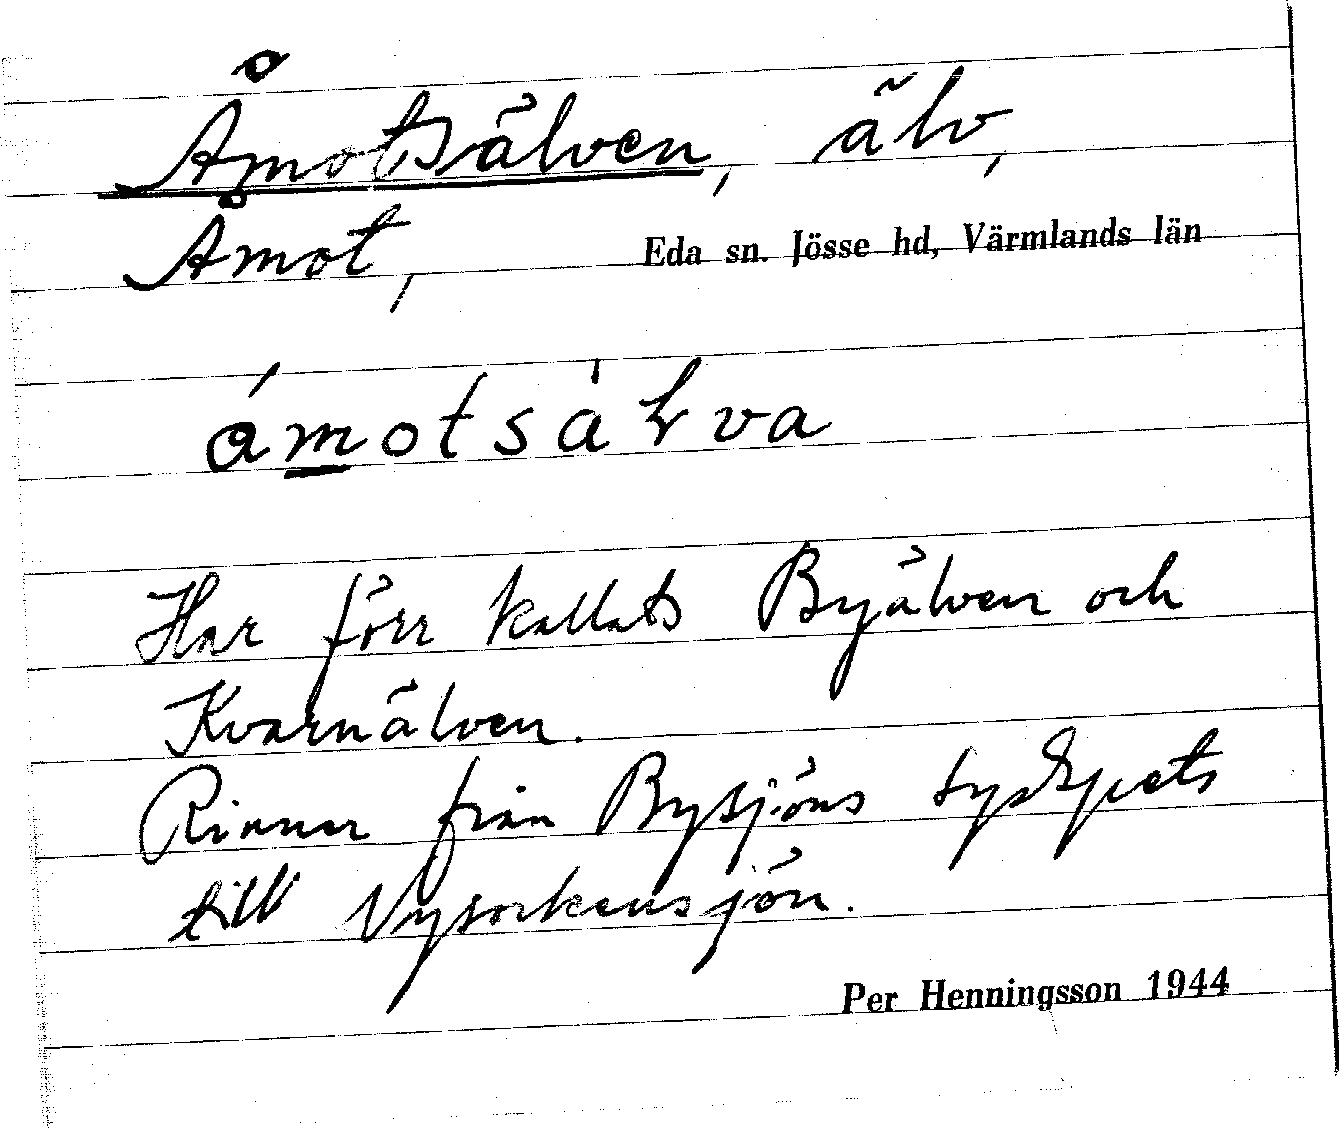 Åmotsälven, älv,
Åmot,
Eda sn. Jösse hd, Värmlands län
åmotsälva
Har förr kallats Byälven och
Kvarnälven.
Rinner från Bysjöns sydspets
till
Per Henningsson 1944